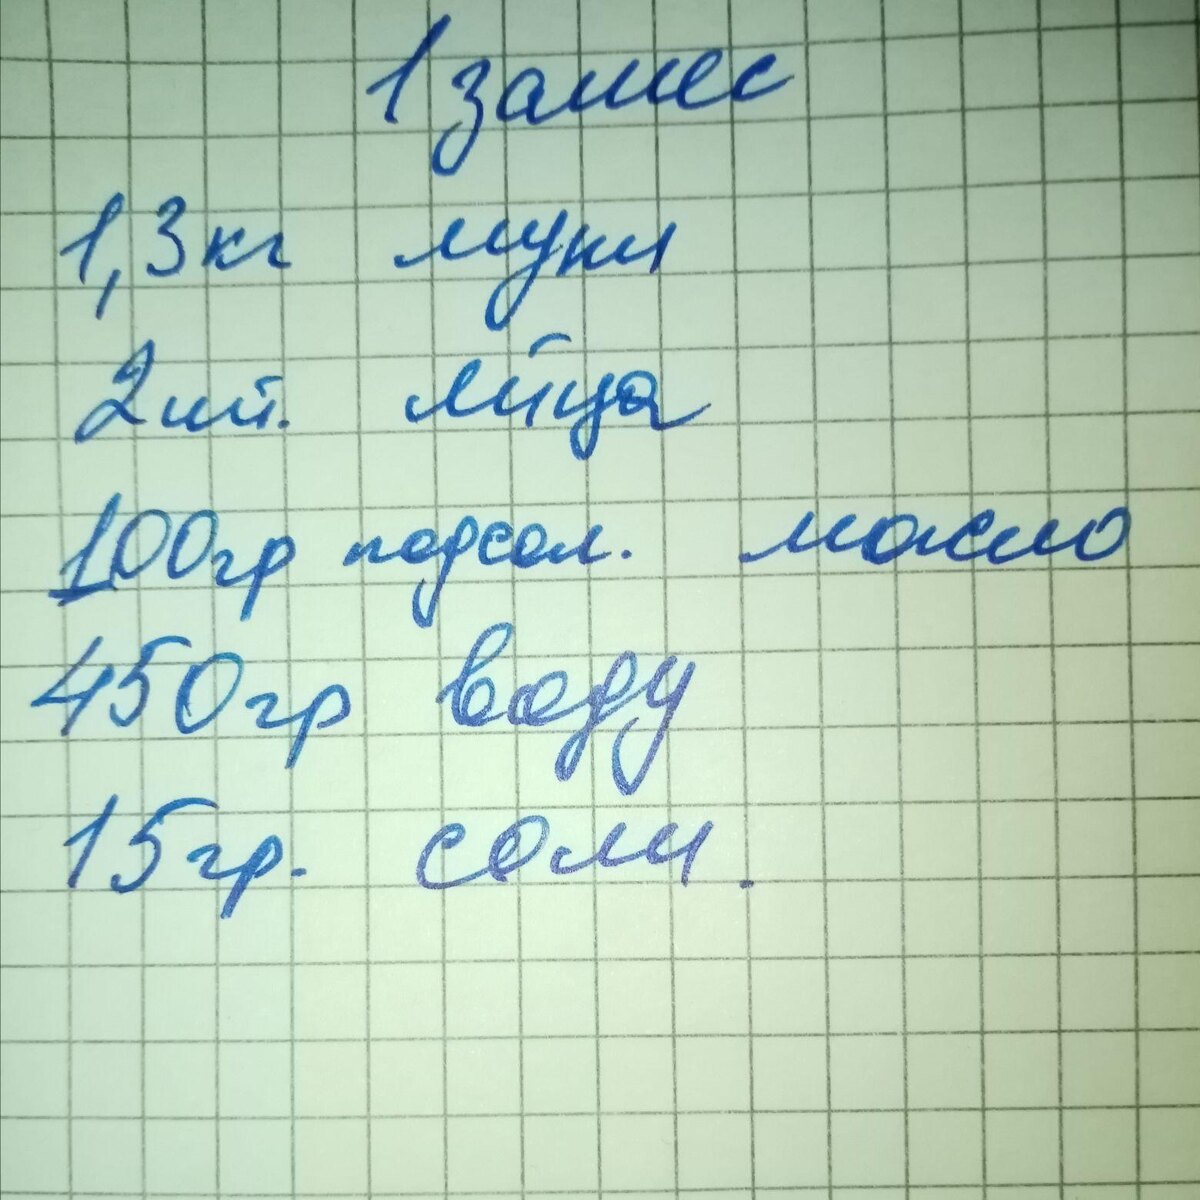 1 замес
1,3кг муки
2шт. яйца
100гр подсол. масло
450гр воду
15гр. соли.